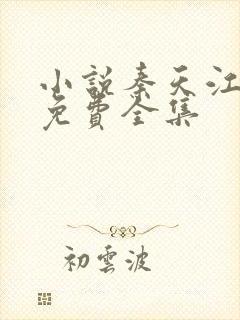 小説秦天江
免費全集
初雲波